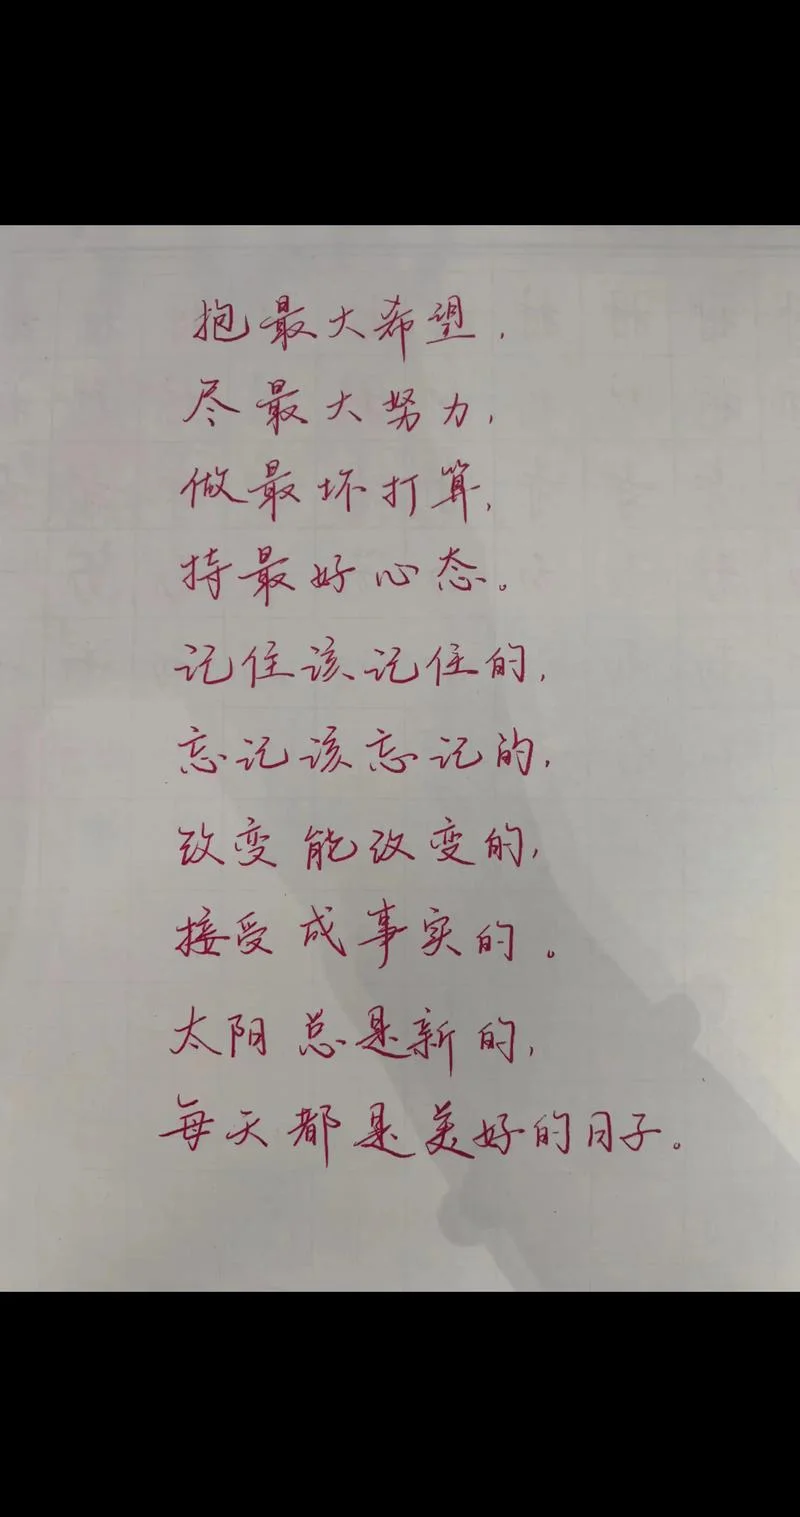 抱最大希望,
尽最大努力,
做最坏打算,
持最好心态。
记住该记住的,
忘记该忘记的,
改变能改变的,
接受成事实的。
太阳总是新的,
每天都是美好的日子。